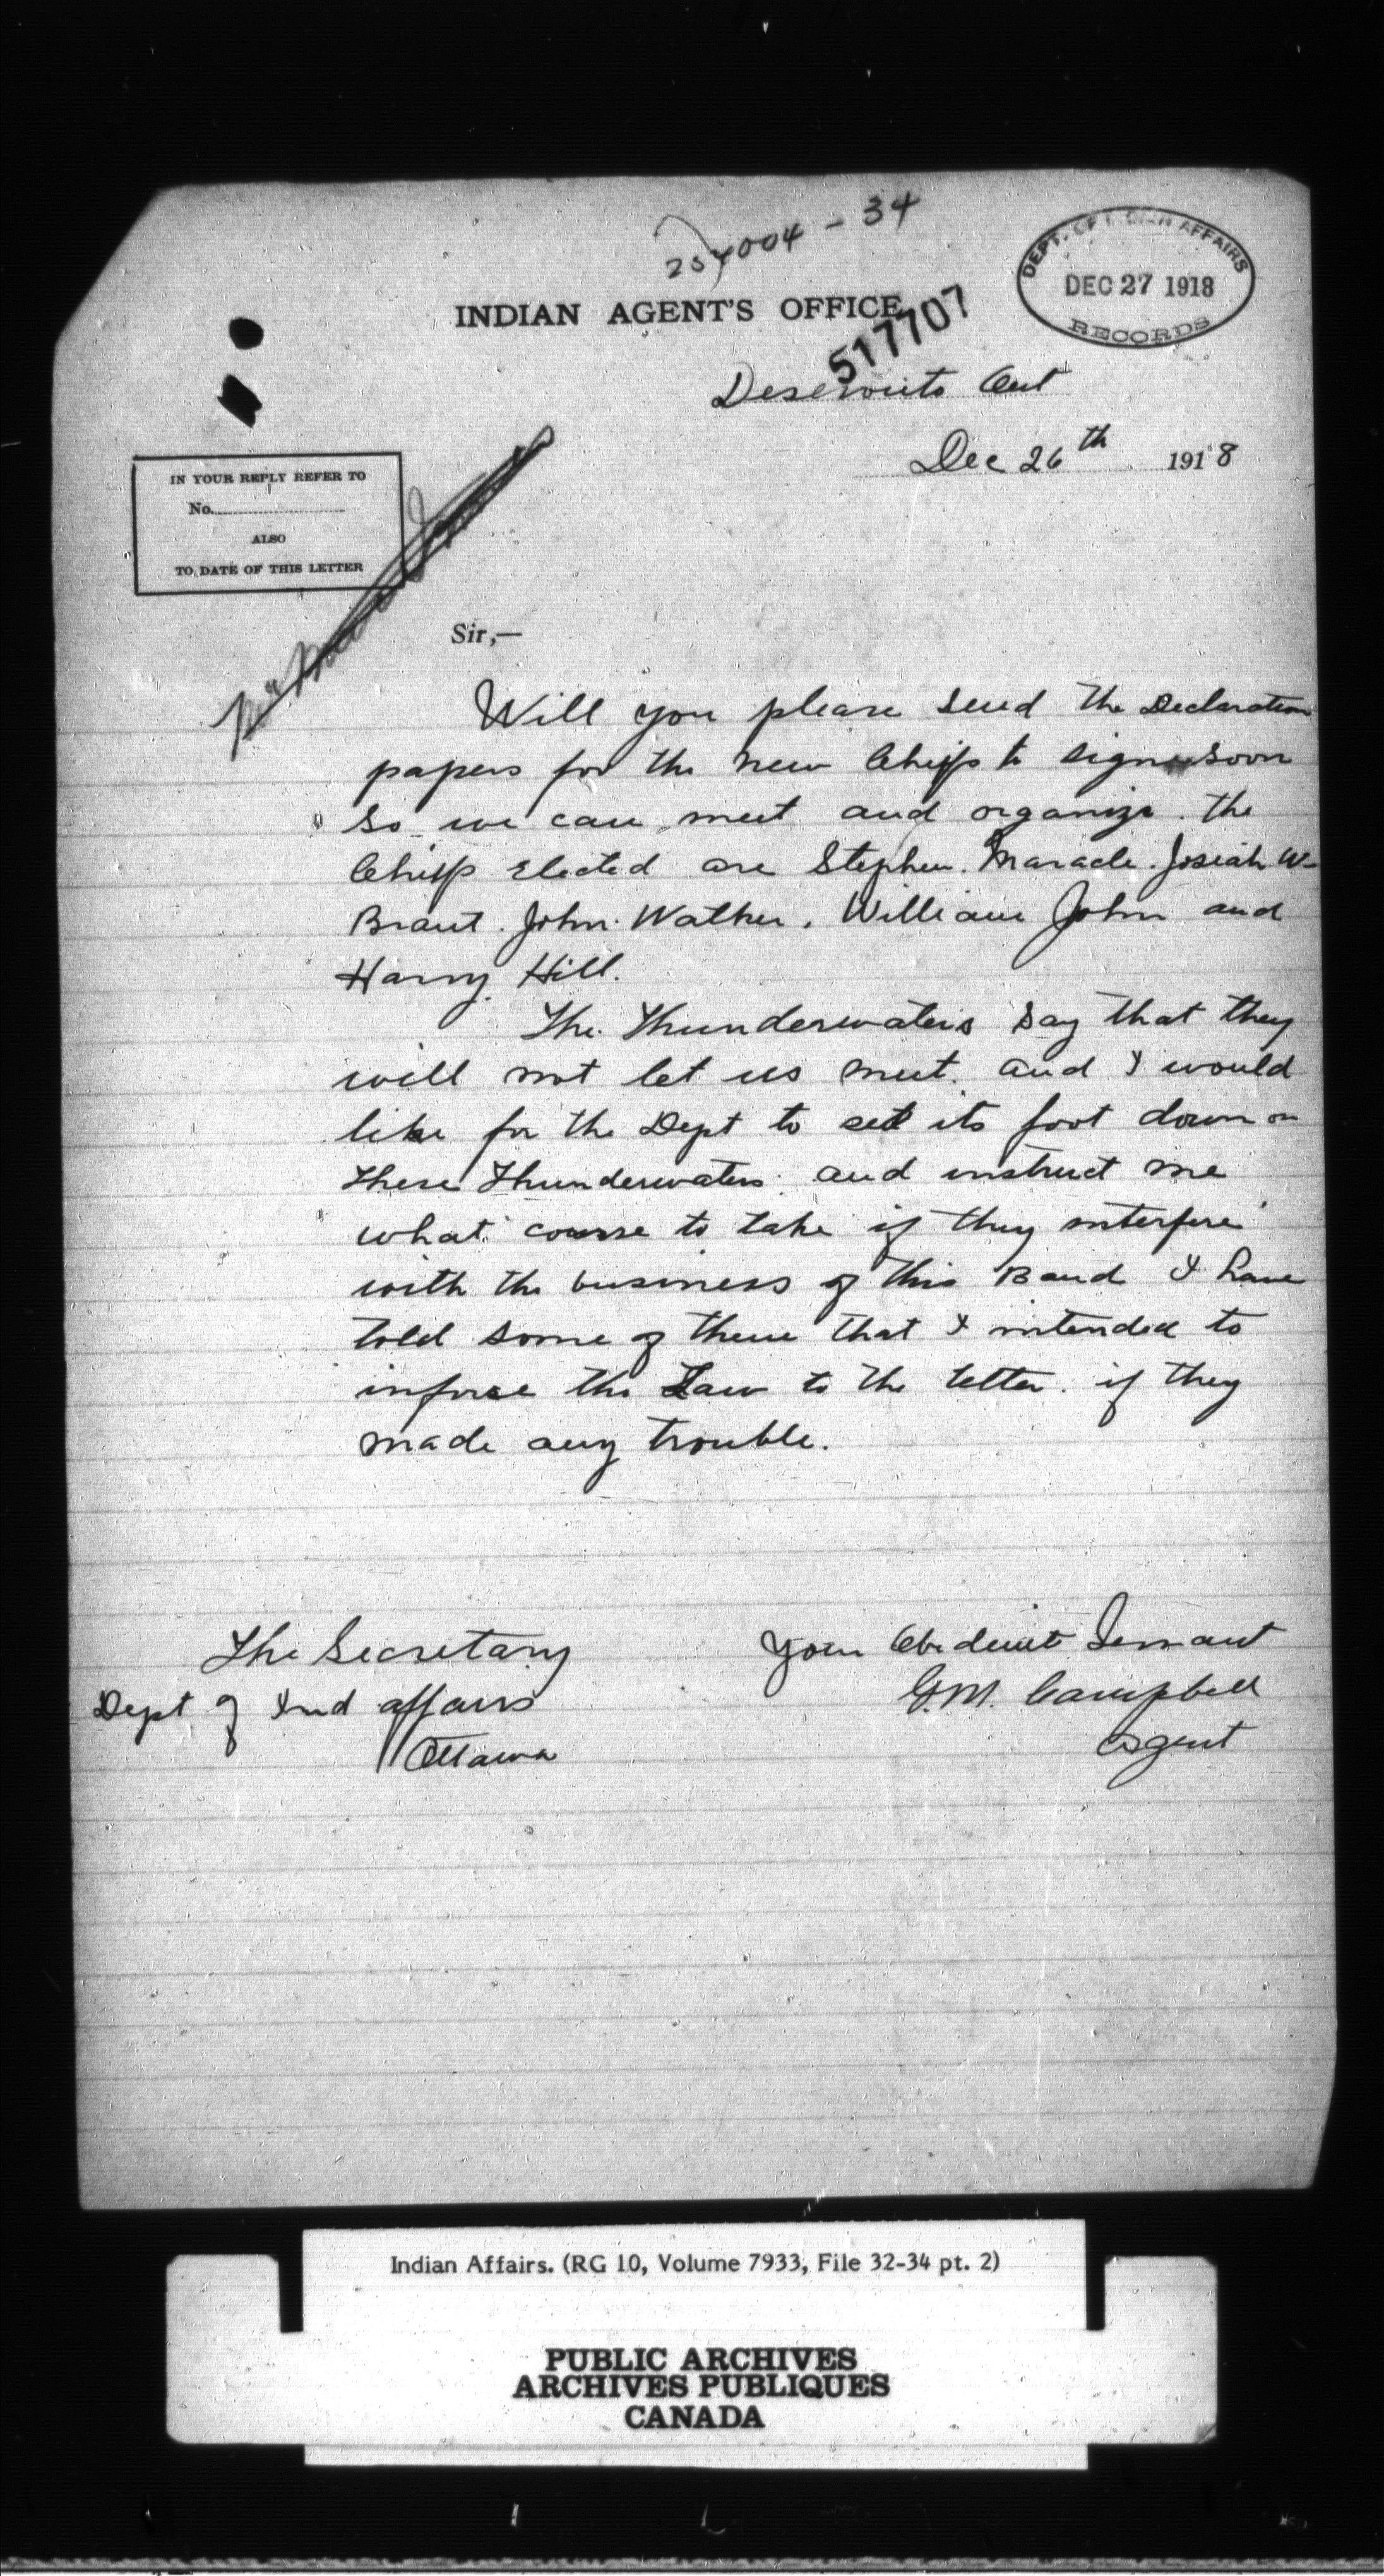 254004 - 34
DEPT. OF INDIAN AFFAIRS
DEC 27 1918
RECORDS
INDIAN AGENT'S OFFICE
517707
Deseronto Ont
Dec 26th 1918
IN YOUR REPLY REFER TO
No.
ALSO
TO DATE OF THIS LETTER
Sir,—
Will you please send the Declaration
papers for the new Chiefs to sign soon
So we can meet and organize. The
Chiefs Elected are Stephen. Maracle. Josiah W
Brant. John. Walker. William John and
Harry Hill.
The Thunderwaters Say that they
will not let us meet. and I would
like for the Dept to set its foot down on
these Thunderwaters. and instruct me
what course to take if they interfere
with the business of this Band I have
told some of them that I intended to
inforce the Law to the letter. if they
made any trouble.
The Secretary
Dept of Ind affairs
Ottawa
Your Obedient Servant
G.M. Campbell
Agent
Indian Affairs. (RG 10, Volume 7933, File 32-34 pt. 2)
PUBLIC ARCHIVES
ARCHIVES PUBLIQUES
CANADA